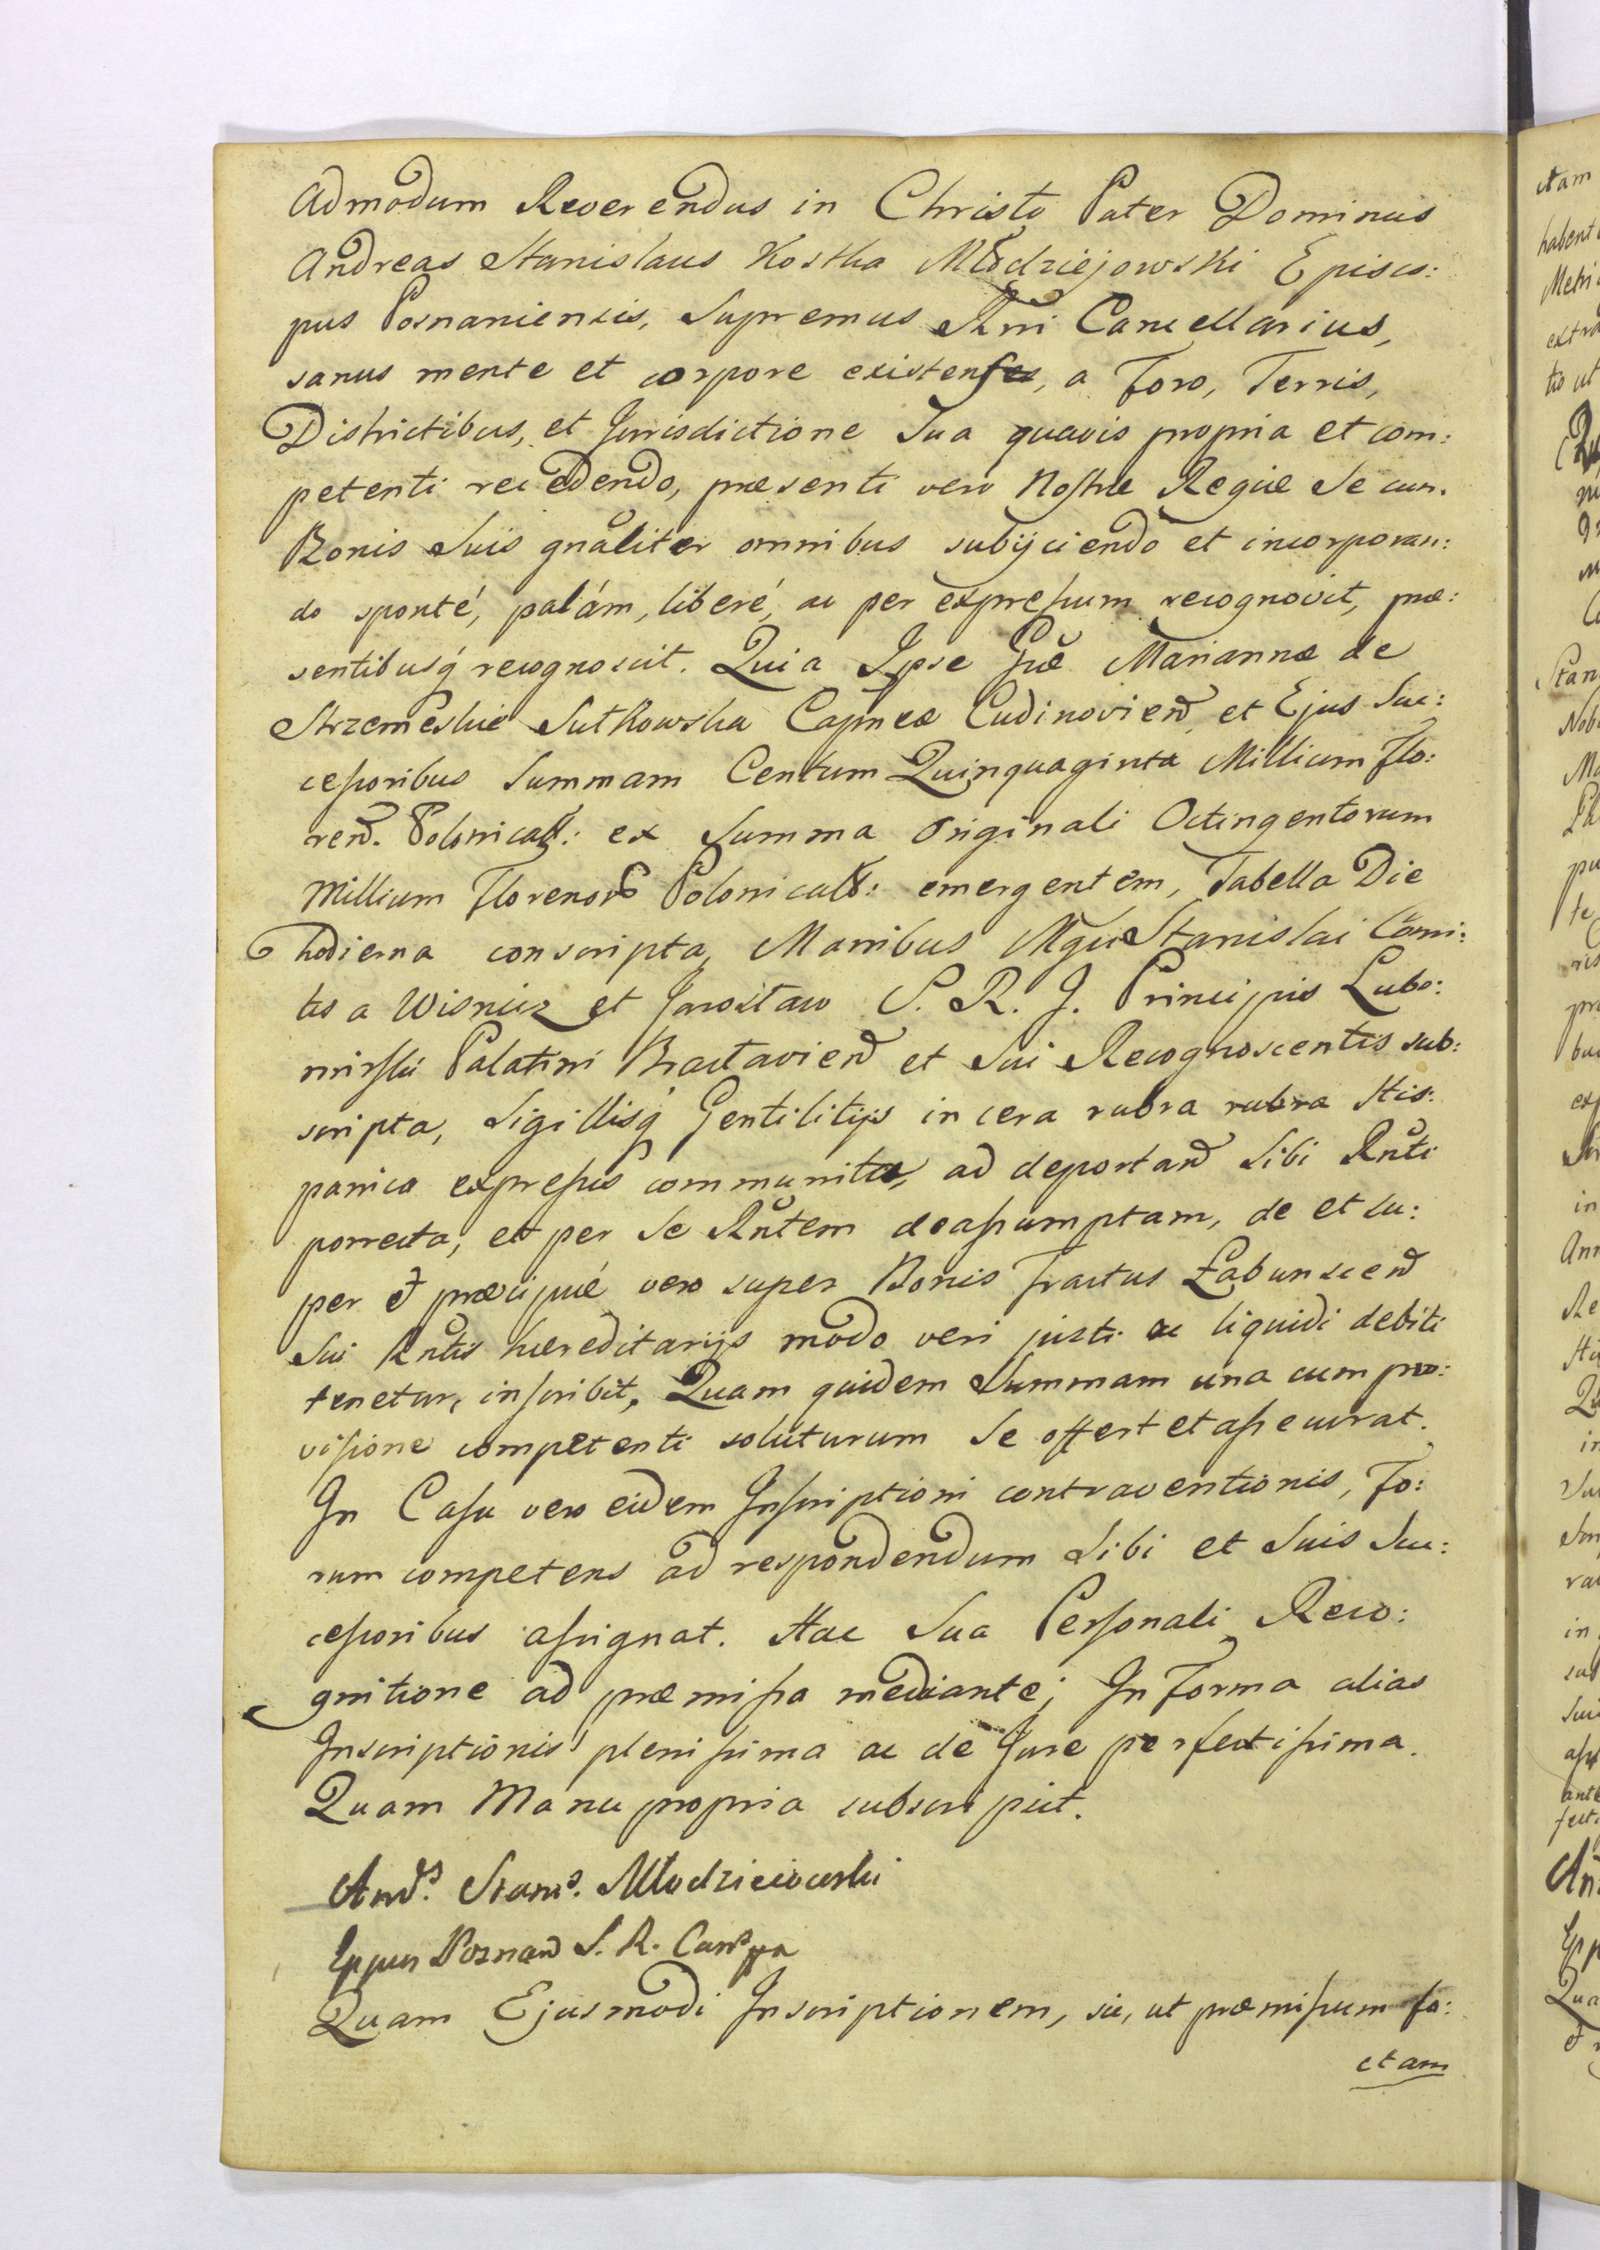 Admodum Reverendus in Christo Pater Dominus
Andreas Stanislaus Kostka Młodziejowski Episco:
pus Posnaniensis, Supremus Rni Cancellarius,
sanus mente et corpore existens, a Foro, Terris,
Districtibus, et Jurisdictione Sua quavis propria et com:
petenti recedendo, præsenti vero Nostræ Regiæ Se cum
Bonis Suis gnaliter omnibus subijciendo et incorporan:
do sponté, palám, liberé, ac per expressum recognovit, præ:
sentibusq́ recognoscit. Quia Ipse Gæ Mariannæ de
Strzemeskie Sutkowska Capneæ Cudinovien et Ejus Suc:
cessoribus Summam Centum Quinquaginta Millium Flo:
ren. Polonical: ex Summa Originali Octingentorum
Millium Florenor Polonical: emergentem, Tabella Die
hodierna conscripta, Manibus Mgci Stanislai Comi:
tis a Wisnicz et Jarosław S. R. J. Principis Lubo:
mirski Palatini Bracłavien et Sui Recognoscentis sub:
scripta, Sigillisq́ Gentilitijs in cera rubra rubra His:
panica expressis communita, ad deportand Sibi Rnti
porrecta, et per Se Rntem deassumptam, de et su:
per et præcipué vero super Bonis Tractus Łabunscen
Sui Rntis hæreditarijs modo veri justi ac liquidi debiti
tenetur, inscribit, Quam quidem Summam una cum pro:
visione competenti soluturum Se offert et assecurat.
In Casu vero eidem Inscriptioni contraventionis, Fo:
rum competens ad respondendum Sibi et Suis Suc:
cessoribus assignat. Hac Sua Personali Reco:
gnitione ad præmissa mediante; In Forma alias
Inscriptionis plenissima ac de Jure perfectissima.
Quam Manu propria subscripsit.
Ands. Stans. Młodzieiowski
Eppus Poznan S. R. Cans
Quam Ejusmodi Inscriptionem, sic, ut præmissum fa:
ctam